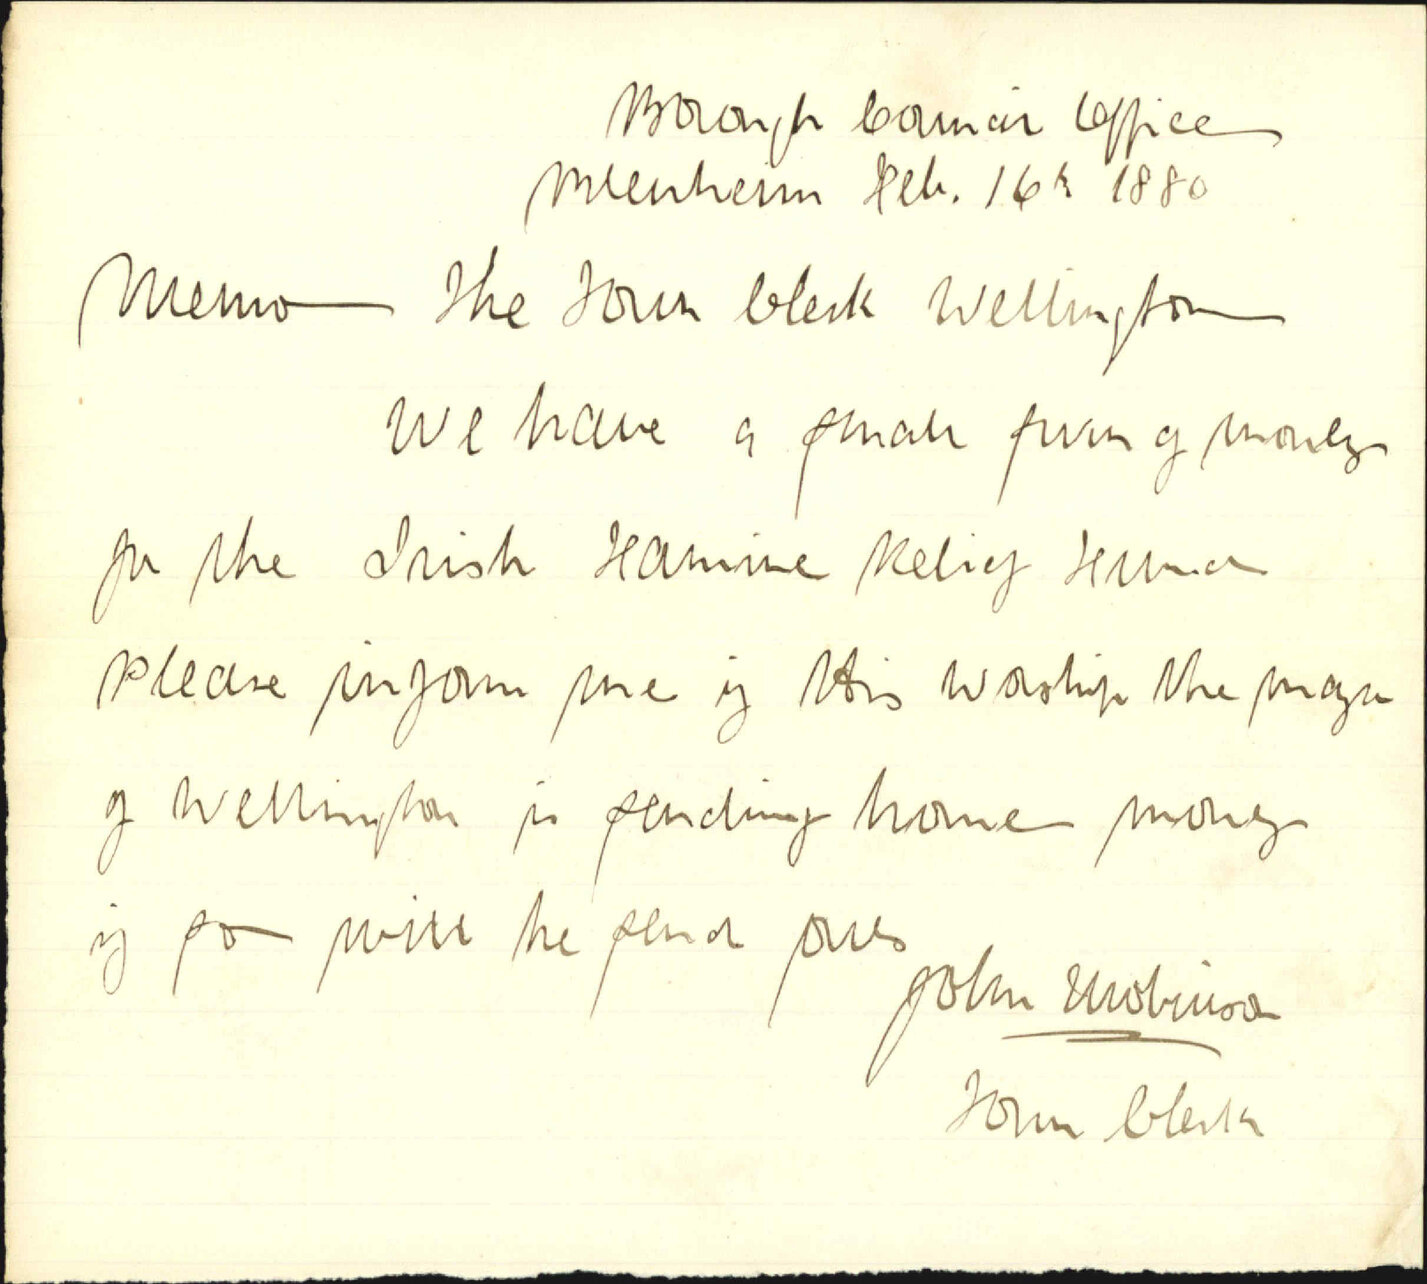 Borough Council Office
Blenheim Feb. 16th 1880
Memo The Town Clerk Wellington
We have a small sum of money
for the Irish Famine Relief Fund
Please inform me if His Worship the mayor
of Wellington is sending home money
if so will he send ours
John Robinson
Town Clerk